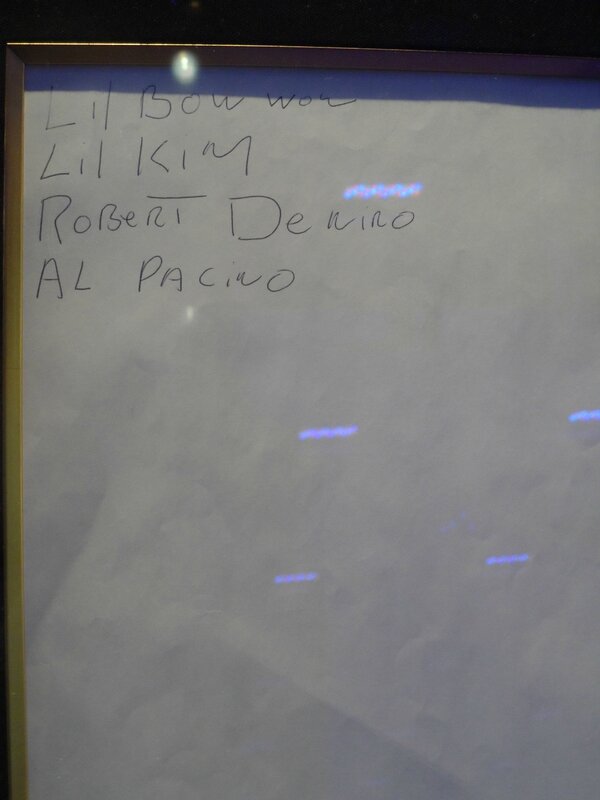 Lil BOW wow
Lil KIM
ROBERT De NiRO
AL PACiNO